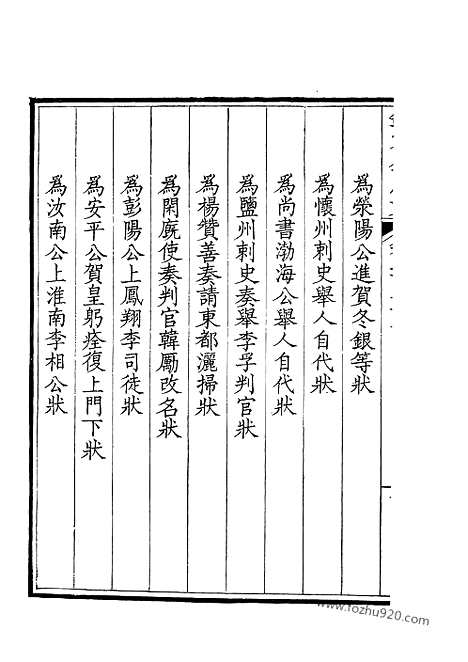 為滎陽公進賀冬銀等狀
為懷州刺史舉人自代狀
為尚書渤海公舉人自代狀
為鹽州刺史奏舉李孚判官狀
為楊贊善奏請東都灑掃狀
為閑廄使奏判官韓勵改名狀
為彭陽公上鳳翔李司徒狀
為安平公賀皇躬痊復上門下狀
為汝南公上淮南李相公狀
www.fozhu920.com